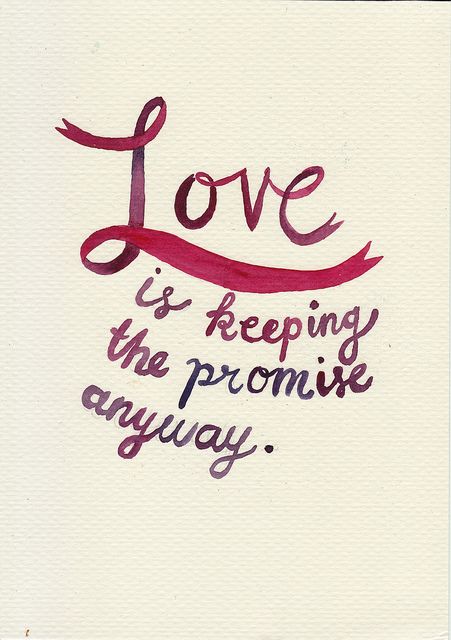 Love
is keeping
the promise
anyway.